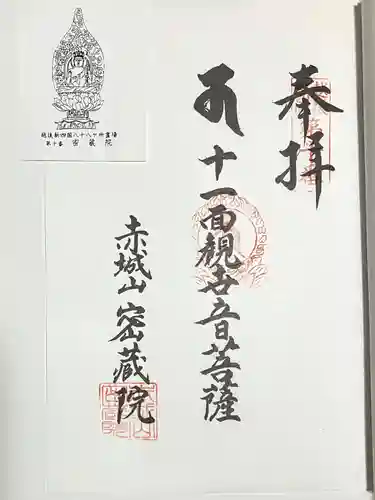 奉拝
十一面観世音菩薩
赤城山密蔵院
越後新四国八十八ヶ所霊場
第十番 密蔵院